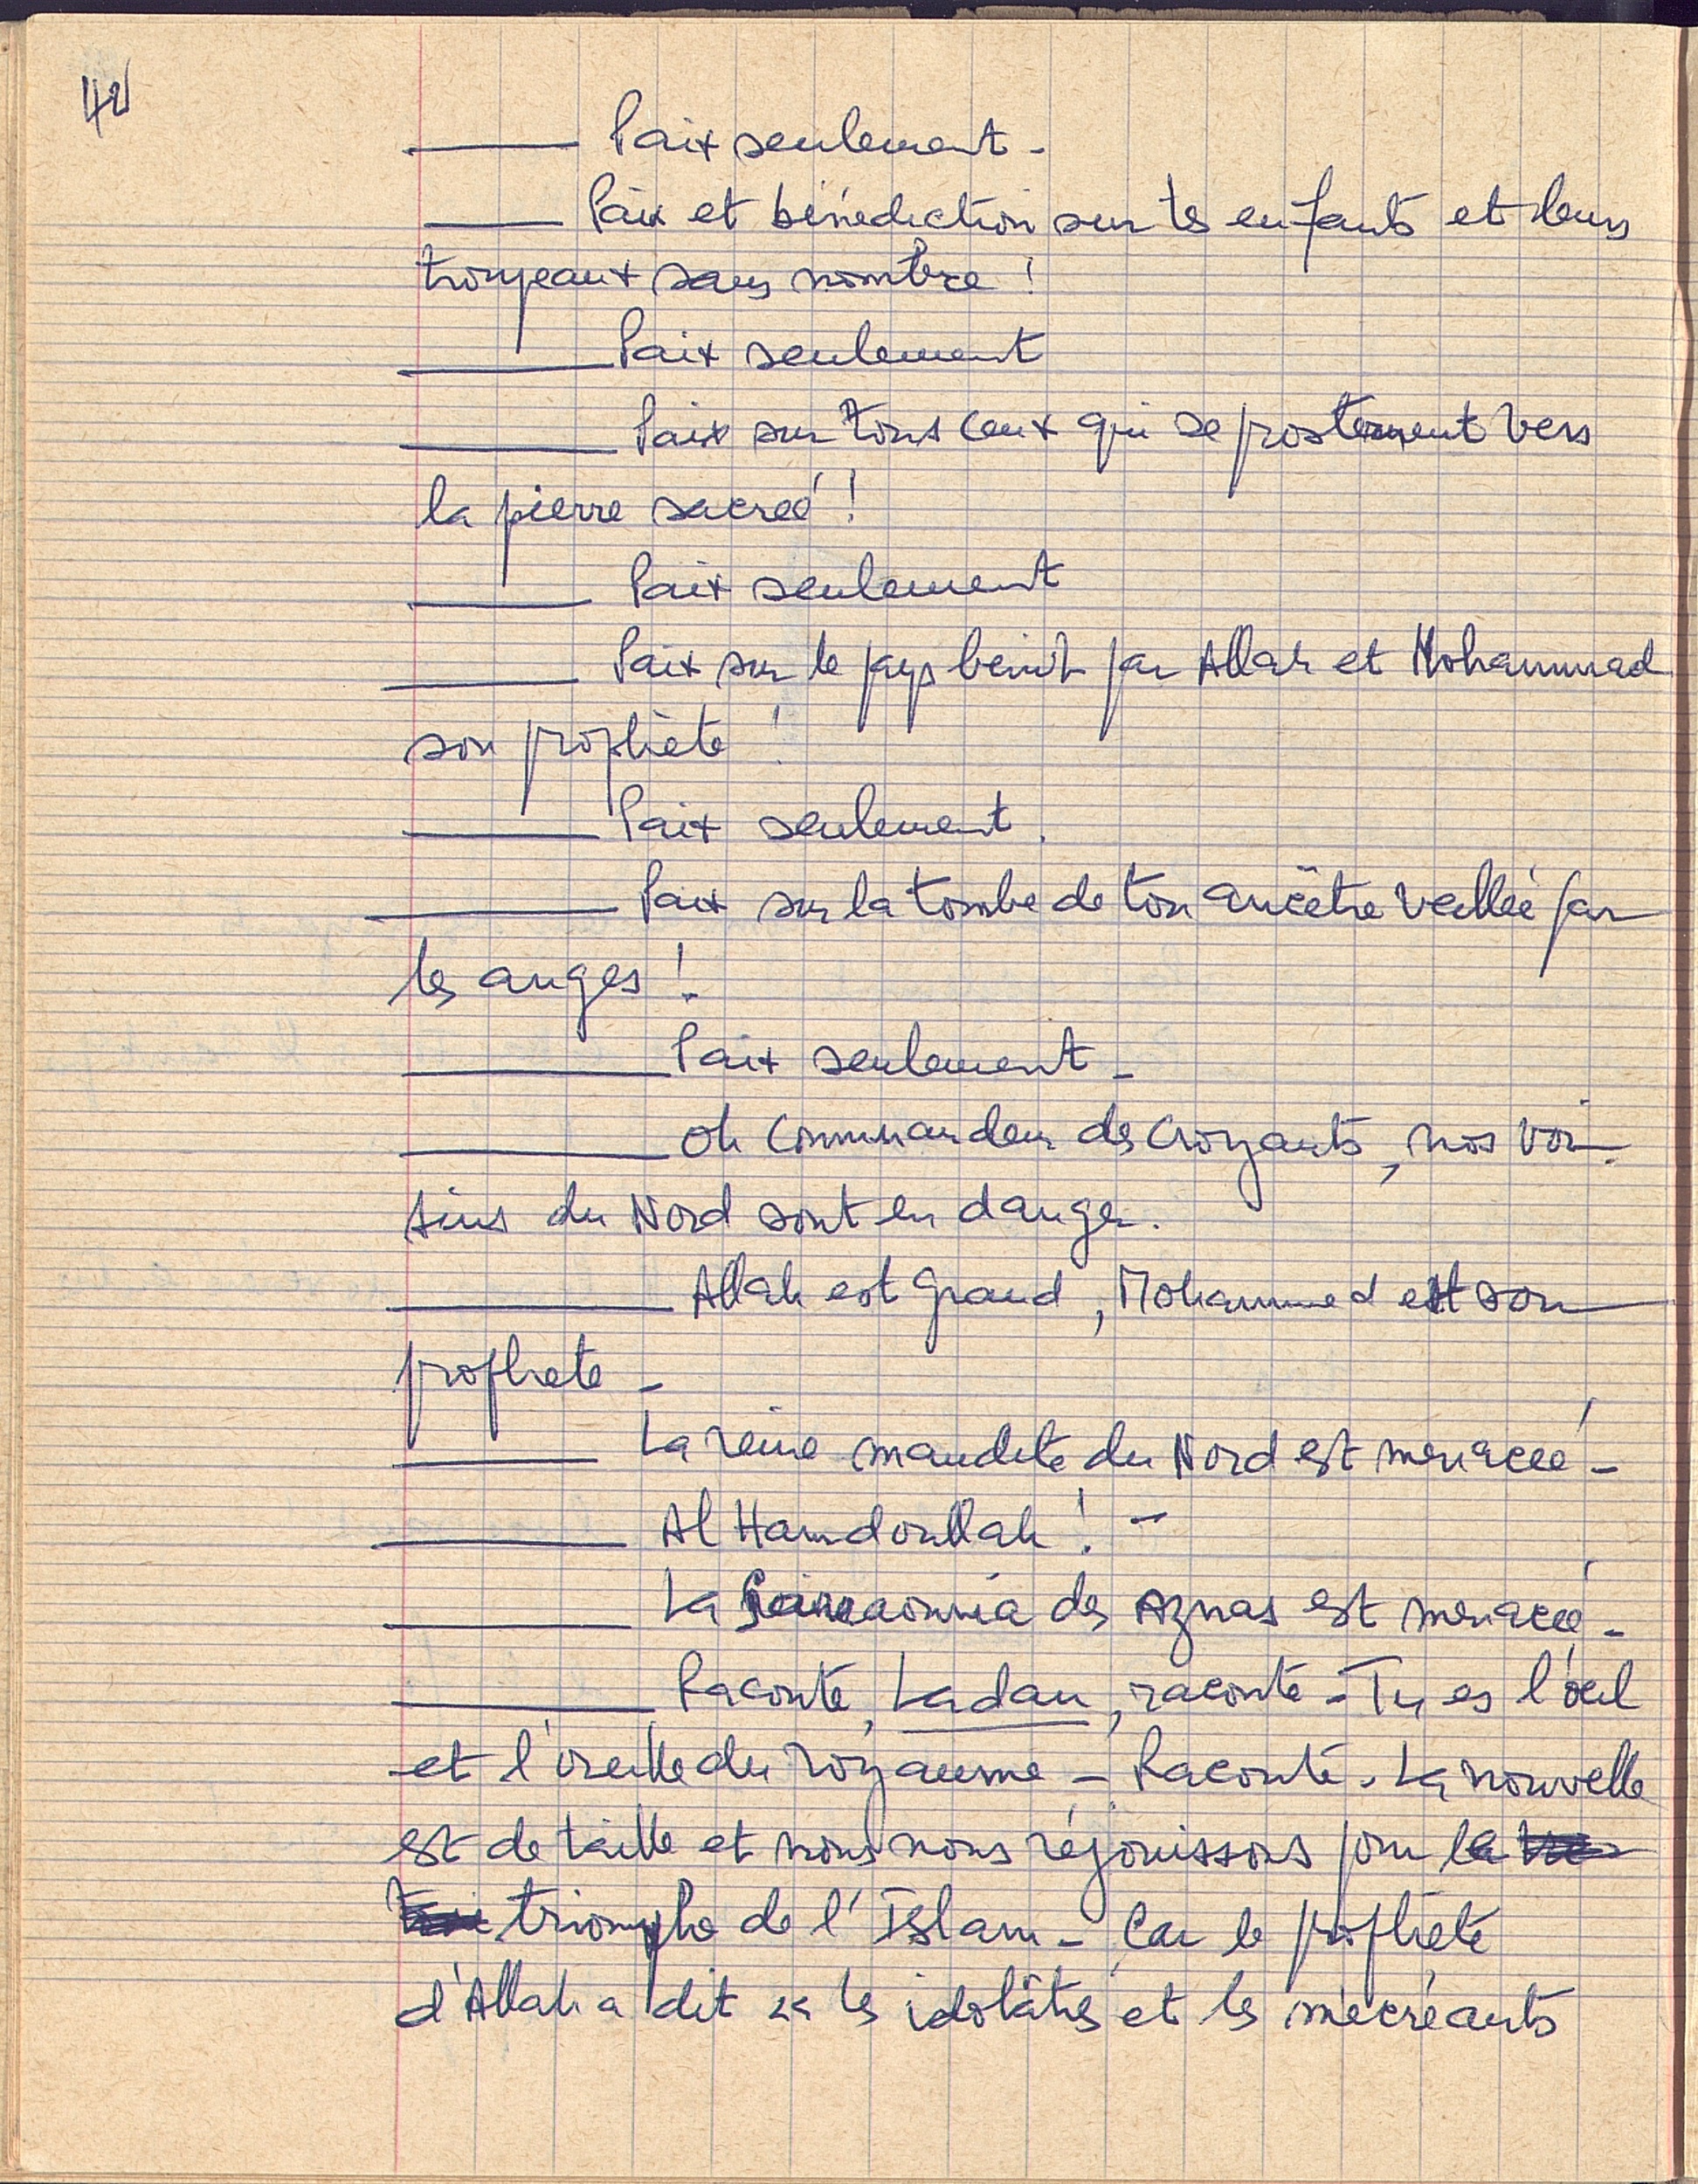 42
— Paix seulement -
— Paix et bénédiction sur tes enfants et leurs
troupeaux sans nombre !
— Paix seulement
— Paix sur tous ceux qui se prosternent vers
la pierre sacrée !
— Paix seulement
— Paix sur le pays benit par Allah et Mohammad
son prophète !
— Paix seulement.
— Paix sur la tombe de ton ancêtre veillée par
les anges !
— Paix seulement -
— Oh Commandeur des Croyants, nos voi-
sins du Nord sont en danger.
— Allah est Grand, Mohammed est son
prophete -
— La reine maudite du Nord est menacée -
— Al Hamdoullah ! -
— La des Aznas est menacée -
— Raconte, Ladan, raconte - Tu es l'œil
et l'oreille du royaume - Raconte. La nouvelle
est de taille et nous nous réjouissons pour le
triomphe de l'Islam - Car le prophète
d'Allah a dit « les idolâtres et les mécréants